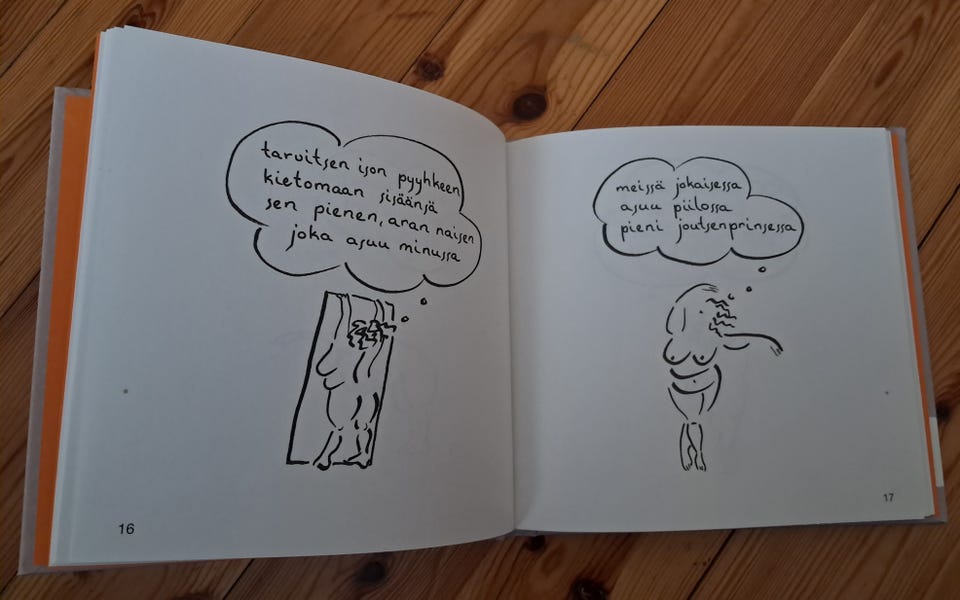 tarvitsen ison pyyhkeen
kietomaan sisäänsä
sen pienen, aran naisen
joka asuu minussa
16
meissä jokaisessa
asuu piilossa
pieni joutsenprinsessa
17